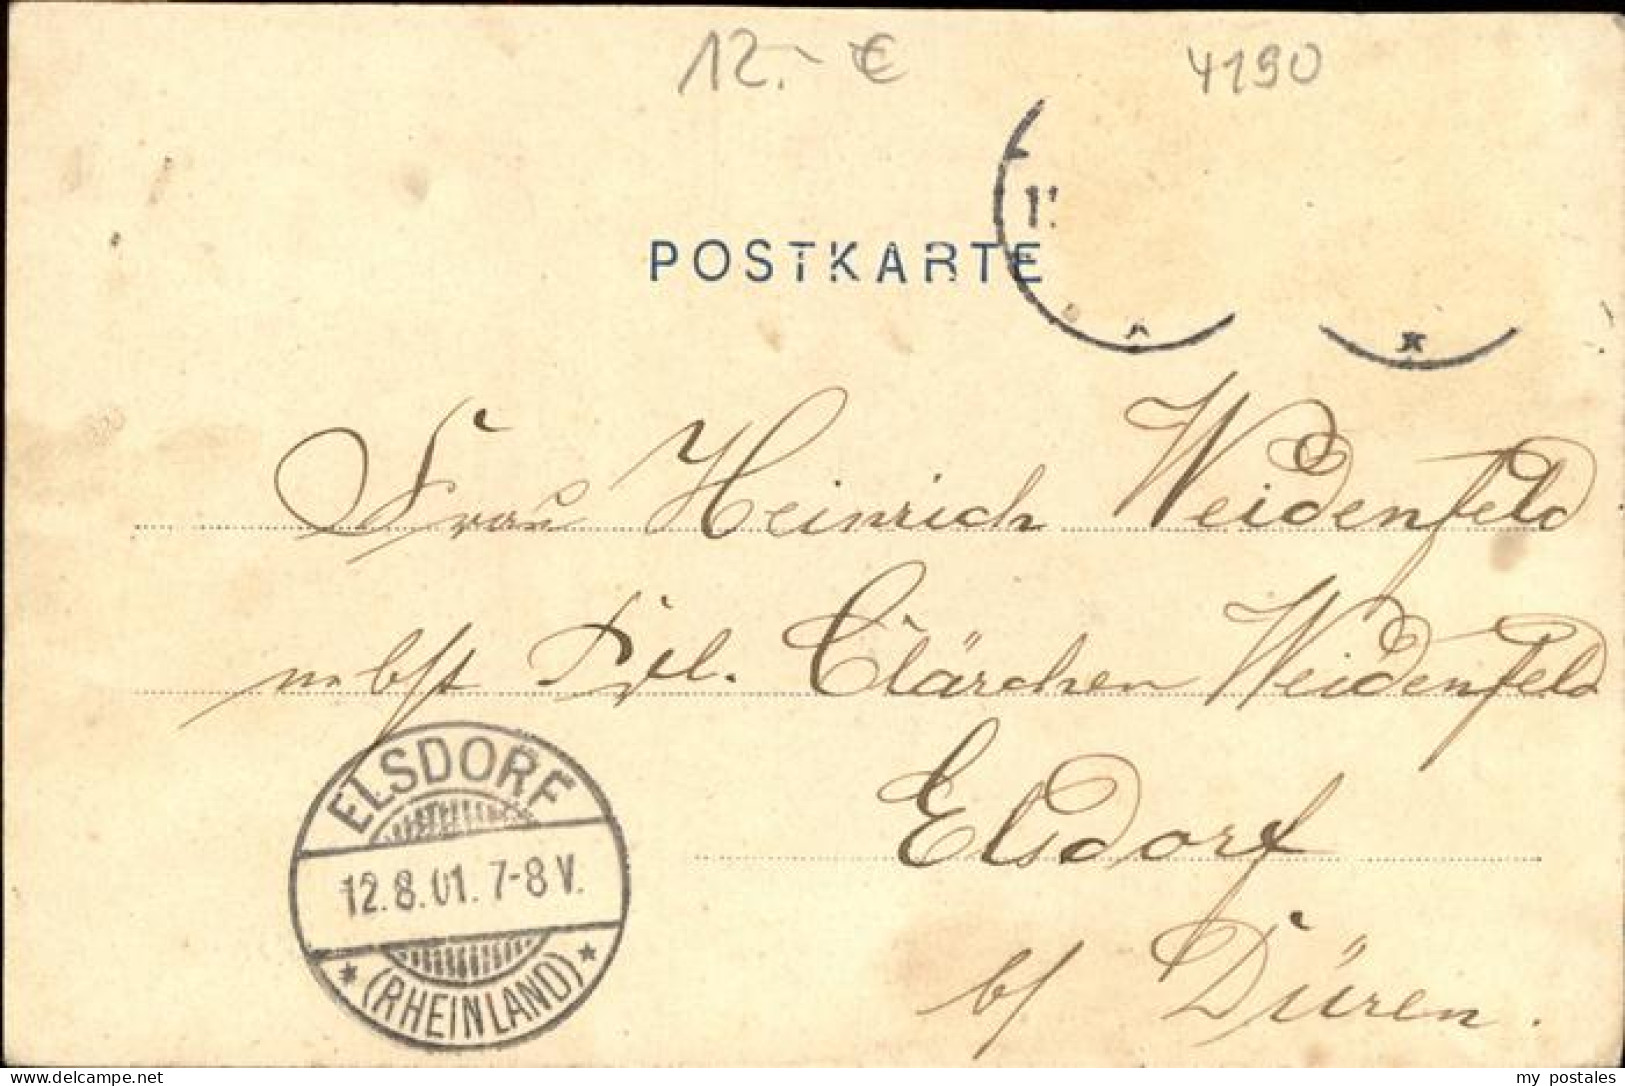 12.- €
4190
POSTKARTE
Frau Heinrich Weidenfeld
nebst Frl. Clärchen Weidenfeld
Elsdorf
b/ Düren.
ELSDORF
12.8.01. 7-8 V.
* (RHEINLAND) *
my postales